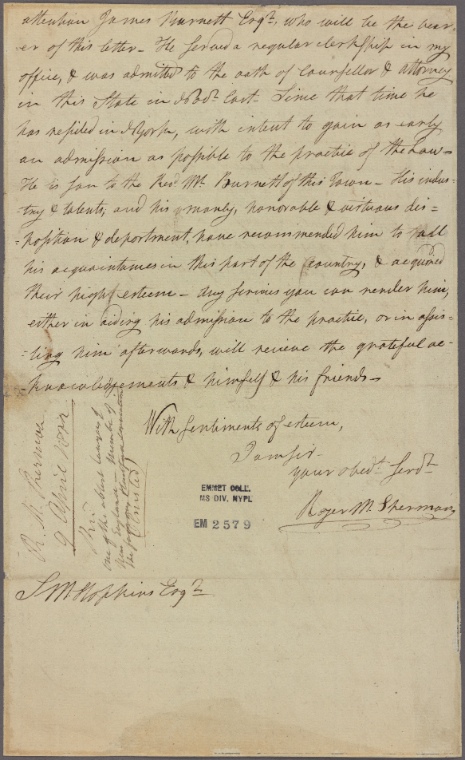 attention James Burnett Esqr. who will be the bear-
er of this letter – He served a regular clerkship in my
office, & was admitted to the oath of Counsellor & attorney
in this State in last. Since that time he
has resided in N York, with intent to gain as early
an admission as possible to the practice of the Law –
He is son to the Revd. Mr. Burnett of this Town – His indus-
try & talents, and his manly, honorable & virtuous dis-
-position & deportment, have recommended him to all
his acquaintances in this part of the country, & acquired
their high esteem – Any services you can render him,
either in aiding his admission to the practice, or in assis-
-ting him afterwards, will recieve the grateful ac-
-knowledgements of himself & his friends –
With sentiments of esteem,
I am sir –
your obedt. Servt.
Roger M. Sherman
R. M. Sherman
9 April
one of the ablest lawyers of
New England
EMMET COLL.
MS DIV, NYPL
EM 2579
S M Hopkins Esqr.